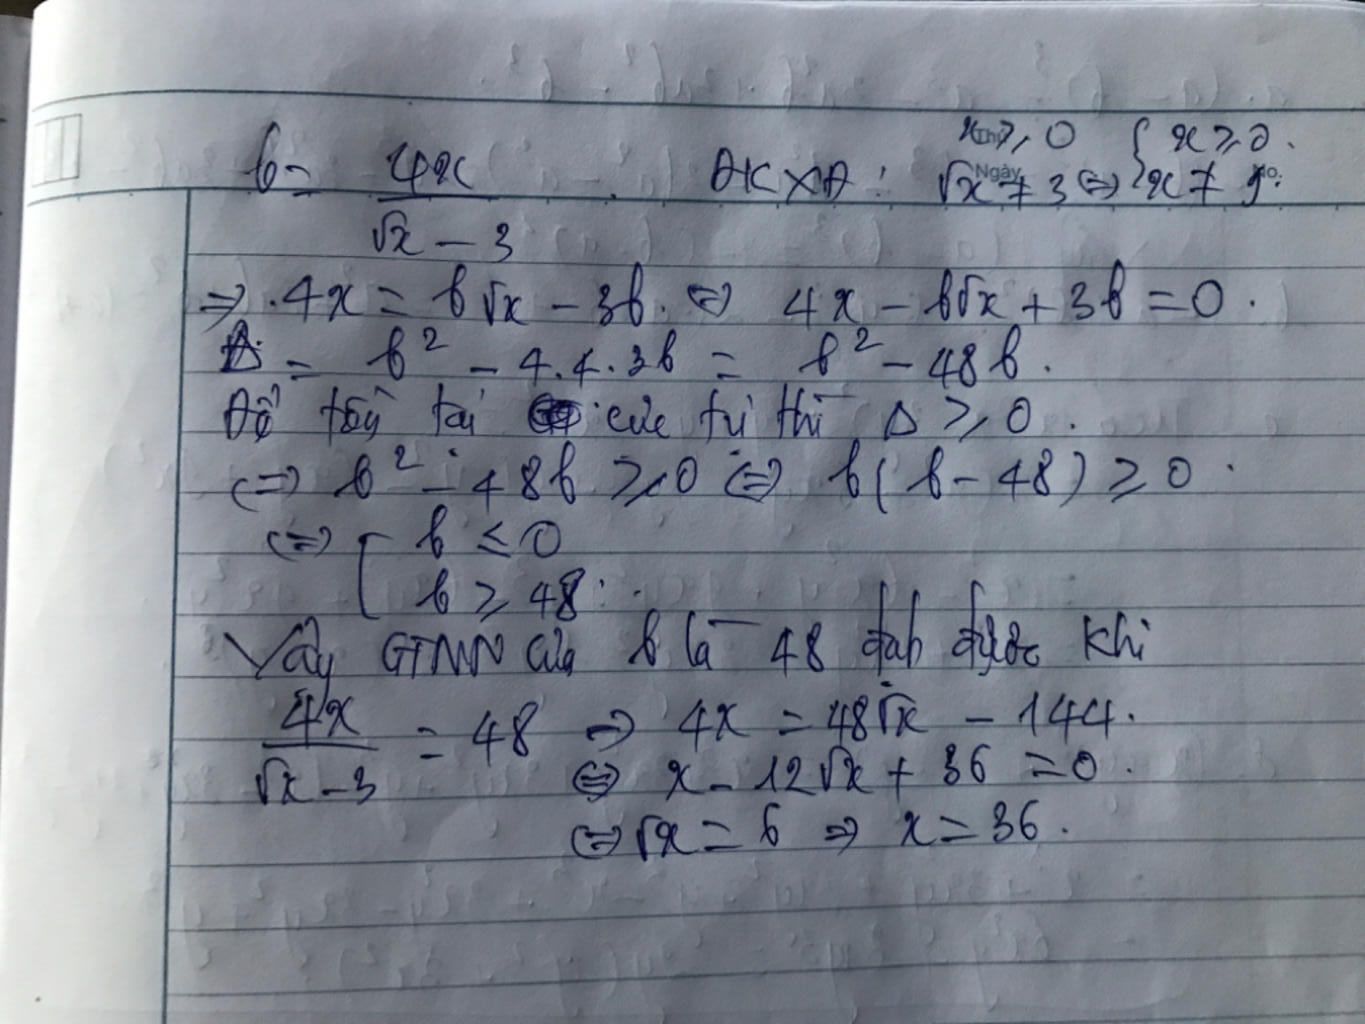 b = 4x / (√x - 3) . ĐKXĐ : x ≥ 0 √x ≠ 3 ⇔ { x ≥ 0 . x ≠ 9.
Thứ
Ngày No.
⇒ .4x = b√x - 3b. ⇔ 4x - b√x + 3b = 0 .
Δ = b² - 4.4.3b = b² - 48b .
Để tồn tại cực trị thì Δ ≥ 0 .
⇔ b² - 48b ≥ 0 ⇔ b(b - 48) ≥ 0 .
⇔ [ b ≤ 0
b ≥ 48 .
Vậy GTNN của b là 48 đạt được khi
4x / (√x - 3) = 48 ⇒ 4x = 48√x - 144.
⇔ x - 12√x + 36 = 0 .
⇔ √x = 6 ⇒ x = 36 .